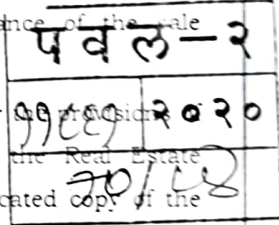 ance of the sale
पवल-२
११८८१ २०२०
the provisions
the Real Estate
cated copy of the